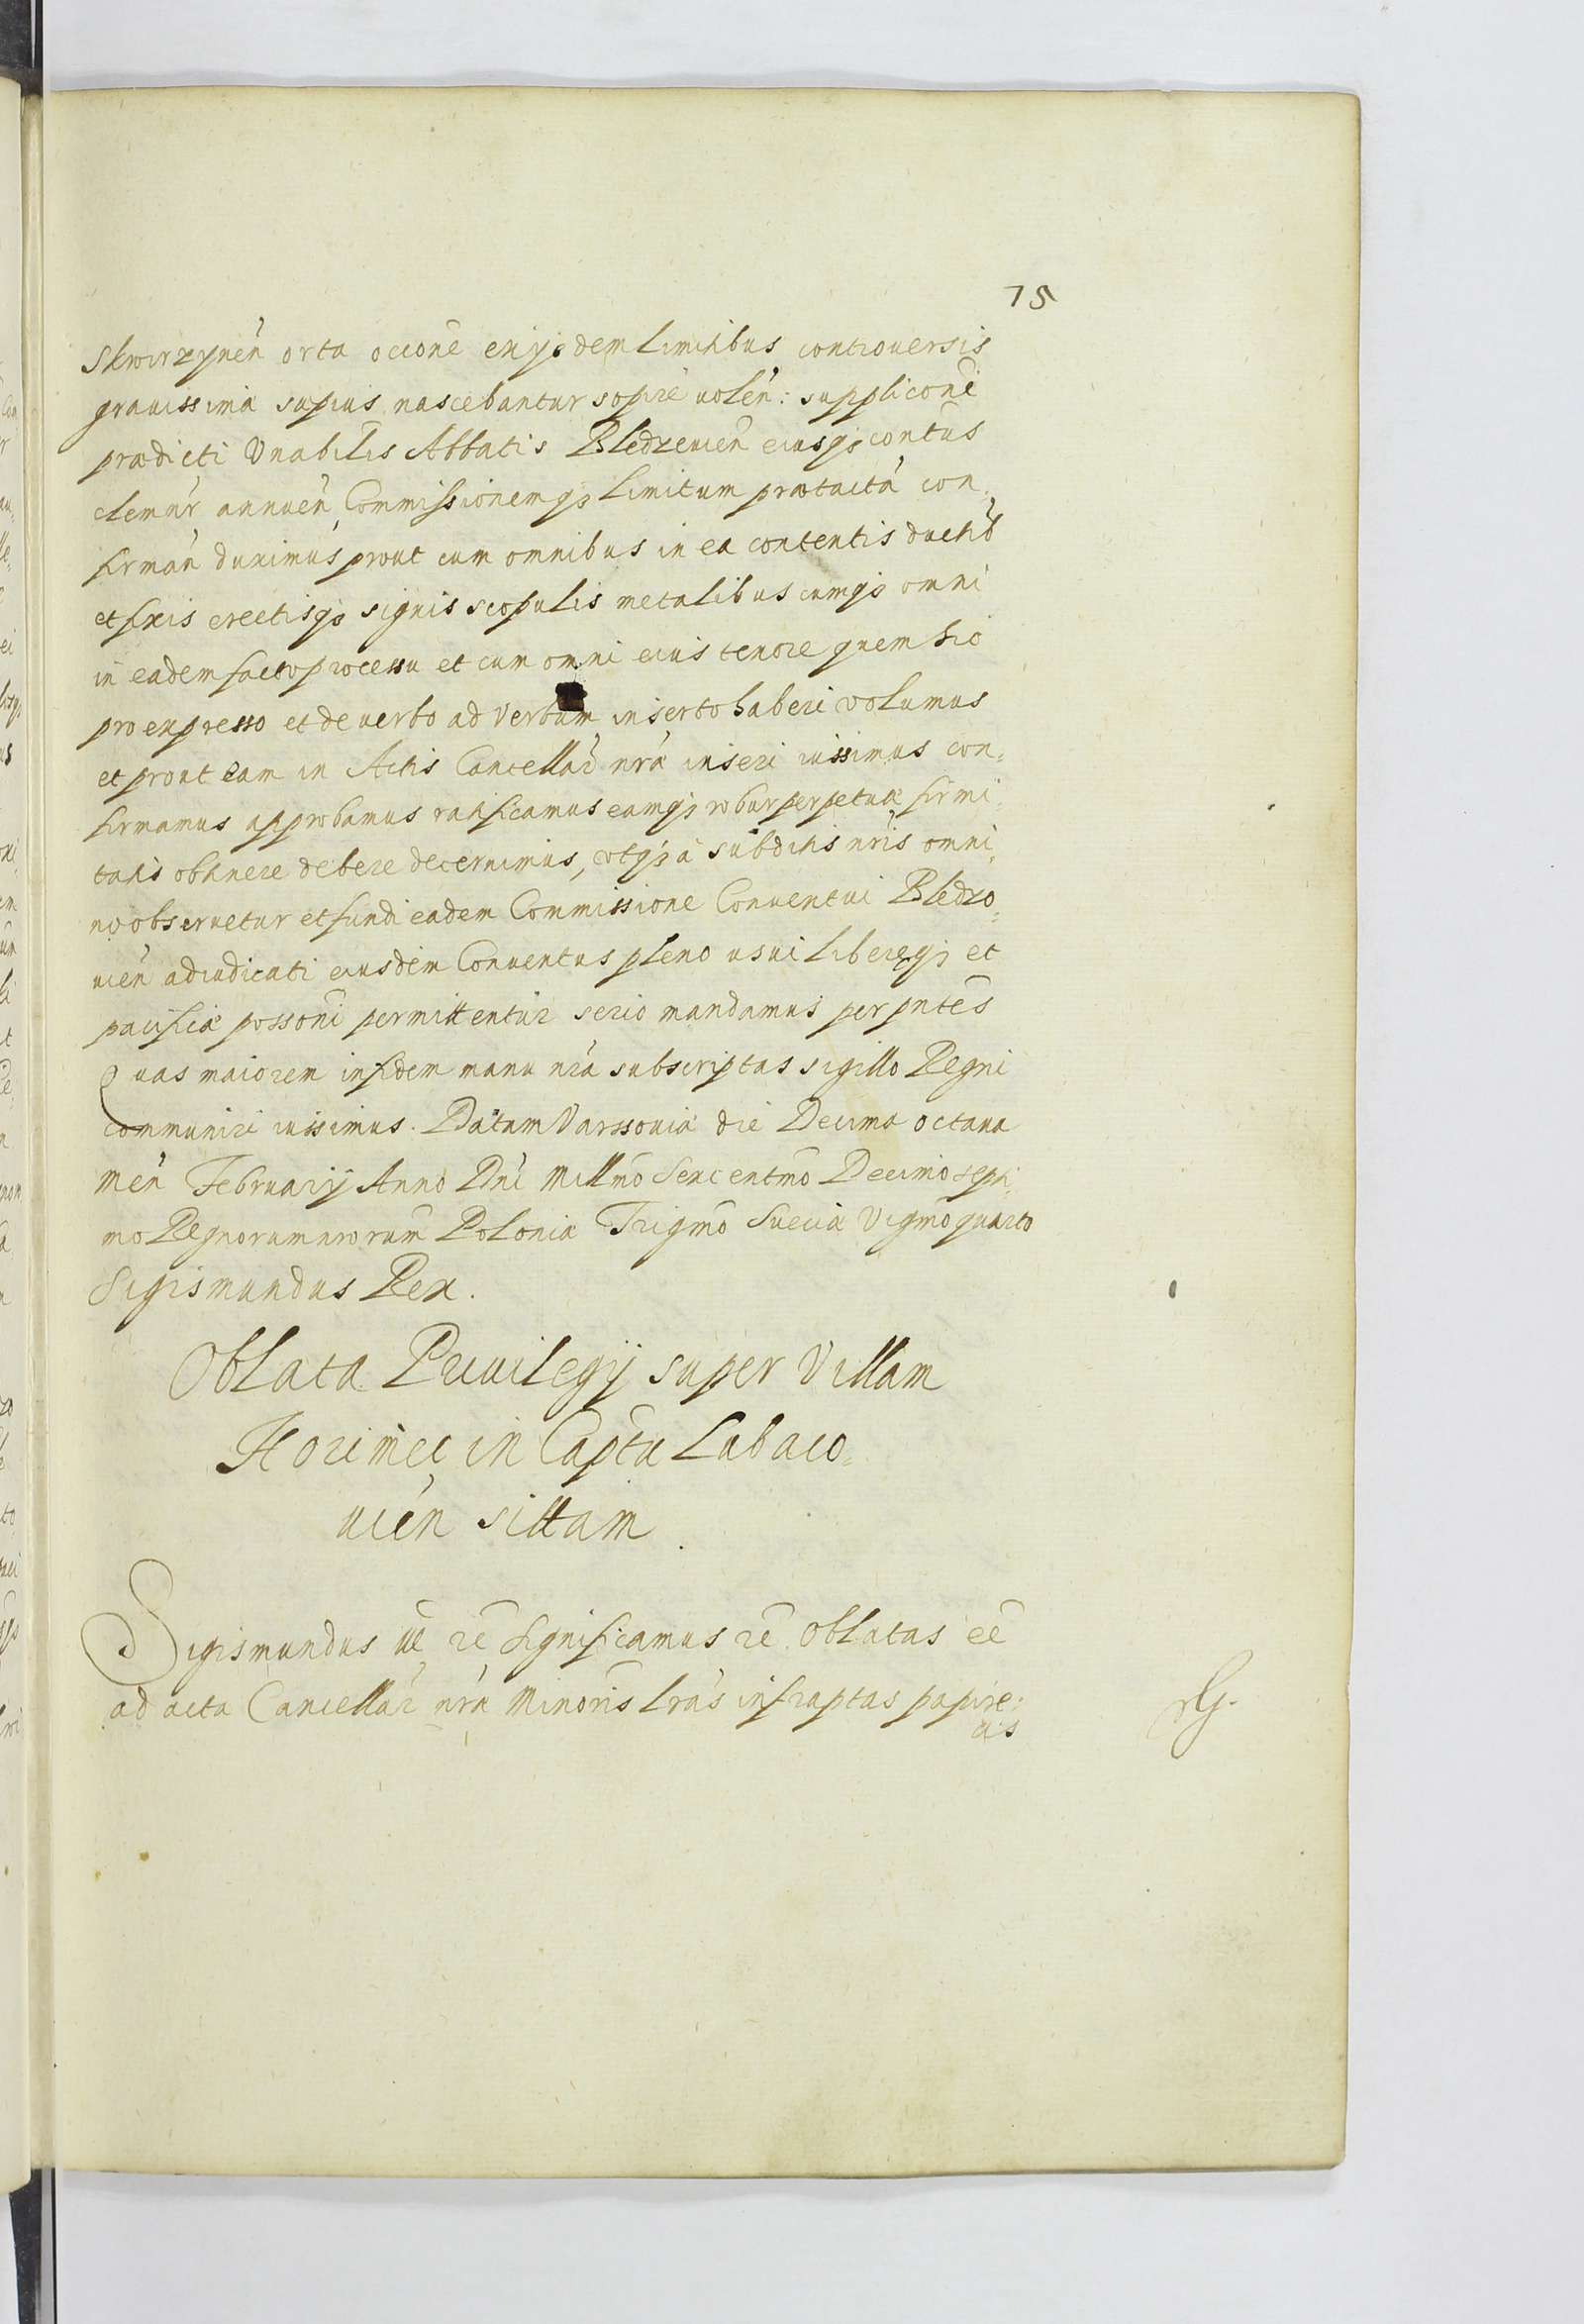 75
Skwirzynen̄ orta occōne exijsdem limitibus controuersis
grauissima sæpius nascebantur sopire uolen̄: supplicōni
prædicti Vnabilis Abbatis Bledzeuien̄ eiusq3 contūs
clemn̄r annuen̄ Commissionemq3 Limitum prætactā con=
firman̄ duximus prout cum omnibus in ea contentis ductib
et fixis erectisq3 signis scopulis metalibus cumq3 omni
in eadem facto processu et cum omni eius tenore quem hic
pro expresso et de uerbo ad verbum inserto haberi volumus
et prout eam in Actis Cancellar̄ nræ inseri iussimus con=
firmamus approbamus ratificamus eamq3 robur perpetuæ firmi=
tatis obtinere debere decernimus, vtq3 à subditis nris omni=
no obseruetur et fundi eadem Commissione Conuentui Bledzo=
uien̄ adiudicati eiusdem Conuentus pleno usui liberæq3 et
pacificæ possōni permittentur serio mandamus per pntēs
Quas maiorem in fidem manu nra subscriptas sigillo Regni
communiri iussimus. Datum Varssouiæ die Decima octaua
men̄ Februarij Anno Dni Millmo Sexcentmo Decimo septi=
mo Regnorum nrorum Poloniæ Trigmo Sueciæ Vigmo quarto
Sigismundus Rex.
Oblata Priuilegij super Villam
Horiniec in Captu Lubaczo=
uien̄ sittam.
Sigismundus etc̄ rē Significamus rē. Oblatas eē
ad acta Cancellar̄ nræ Minoris Lrās infraptas papire:
as